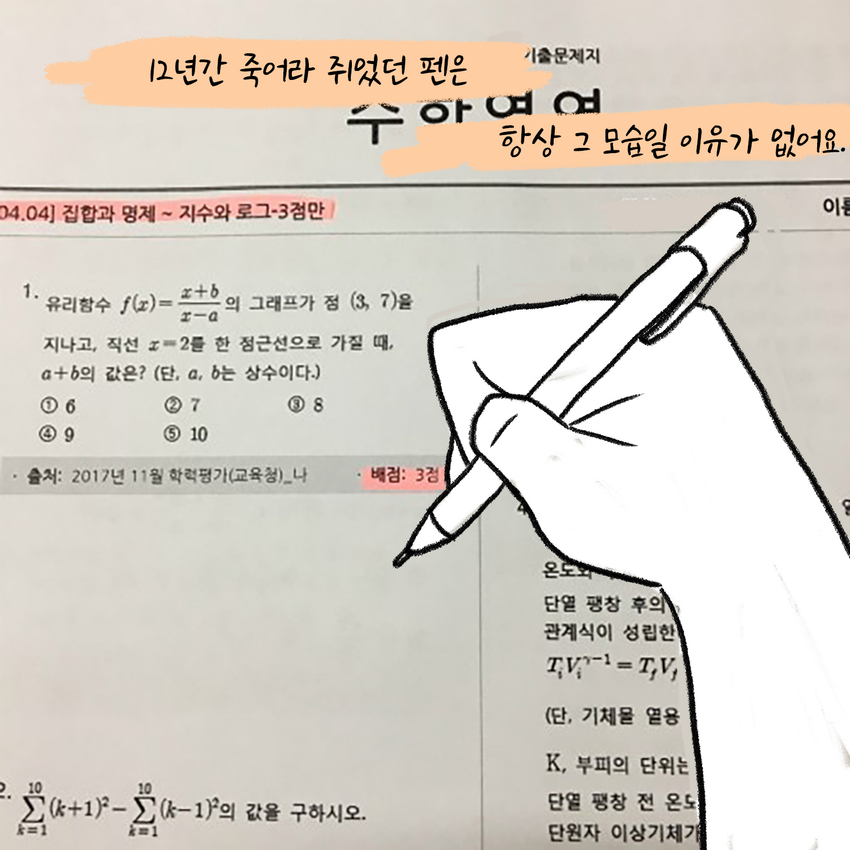 12년간 죽어라 쥐었던 펜은
기출문제지
수학영역
항상 그 모습일 이유가 없어요.
04.04] 집합과 명제 ~ 지수와 로그-3점만
1. 유리함수 f(x)=\frac{x+b}{x-a}의 그래프가 점 (3, 7)을
지나고, 직선 x=2를 한 점근선으로 가질 때,
a+b의 값은? (단, a, b는 상수이다.)
① 6 ② 7 ③ 8
④ 9 ⑤ 10
· 출처: 2017년 11월 학력평가(교육청)_나 · 배점: 3점
\sum_{k=1}^{10}(k+1)^2-\sum_{k=1}^{10}(k-1)^2의 값을 구하시오.
온도와
단열 팽창 후의
관계식이 성립한
T_iV_i^{γ-1}=T_fV_f
(단, 기체몰 열용
K, 부피의 단위는
단열 팽창 전 온도
단원자 이상기체가